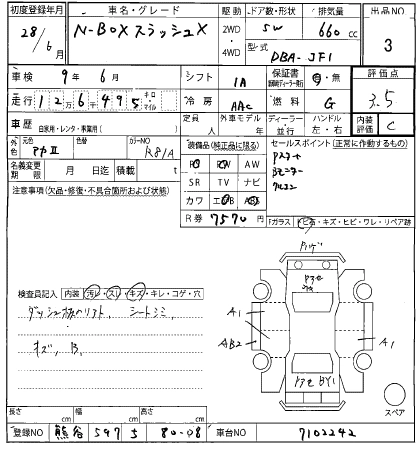 初度登録年月 車名・グレード 駆動 ドア数・形状 排気量 出品NO
28/6月 N-BOXスラッシュX 2WD 4WD 5W 660cc 3
型式 DBA-JF1
車検 9年6月 シフト IA 保証書 有・無 評価点
走行 126495 キロ マイル 冷房 AAC 燃料 G 3.5
車歴 自家用・レンタ・事業用( ) 定員 人 外車モデル 年 ディーラー・並行 ハンドル 左・右 内装評価 C
外色 元色 アカⅡ 色替 カラーNO R81A
装備品(純正品に限る) セールスポイント(正常に作動するもの)
名義変更期限 月 日迄 積載 t
PS PW AW
SR TV ナビ
カワ エAB ABS
注意事項(欠品・修復・不具合箇所および状態)
R券 7570円
Fガラス トビ石・キズ・ヒビ・ワレ・リペア跡
検査員記入 内装 汚レ・スレ・キズ・キレ・コゲ・穴
シートシミ
キズ、B、
A1
AB2
A1
BY1
スペア
長さ cm 幅 cm 高さ cm
登録NO 熊谷 597 5 80-08 車台NO 7102242